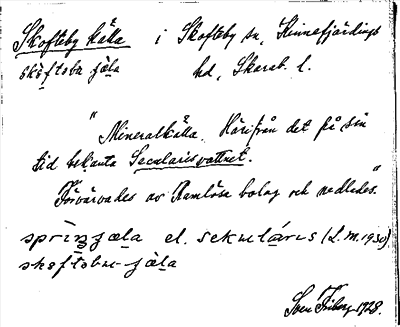 Skofteby källa i Skofteby sn, Kinnefjärdings
skòftobu ɟäla hd, Skarab. l.
"Mineralkälla. Härifrån det på sin
tid bekanta Secularisvattnet.
Förvärvades av Ramlösa bolag och nedlades."
sprìŋɟæla el. sekulárıs (L.M. 1930).
skòftobu-ɟæla
Sven Friberg 1928.